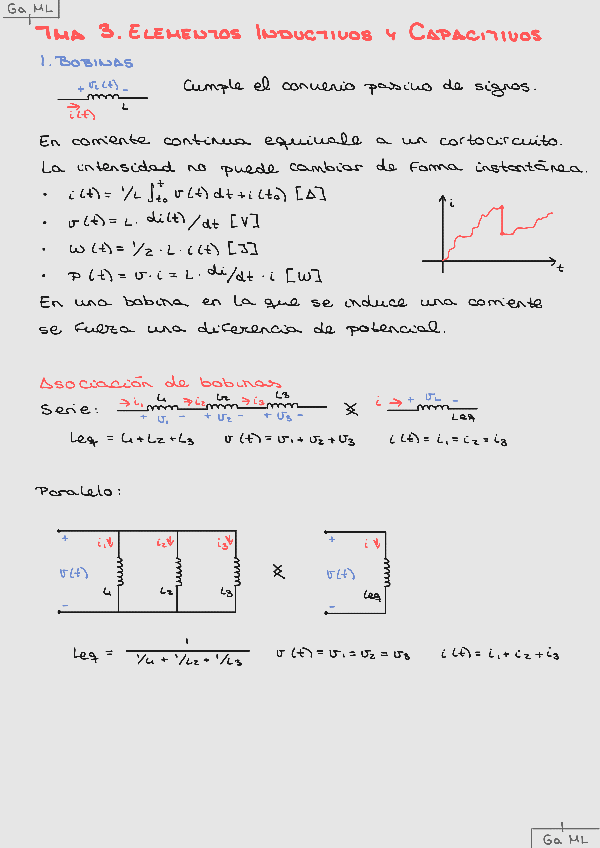 Ga ML
TMA 3. ELEMENTOS INDUCTIVOS Y CAPACITIVOS
1. BOBINAS
+ v_L(t) -
i(t) L
Cumple el convenio pasivo de signos.
En corriente continua equivale a un cortocircuito.
La intensidad no puede cambiar de forma instantánea.
· i(t) = 1/L ∫_{t0}^{t} v(t) dt + i(t0) [A]
· v(t) = L · di(t)/dt [V]
· W(t) = 1/2 · L · i(t) [J]
· P(t) = v · i = L · di/dt · i [W]
i
t
En una bobina en la que se induce una corriente
se fuerza una diferencia de potencial.
Asociación de bobinas
Serie: i1 L1 i2 L2 i3 L3 i + vL -
+ v1 - + v2 - + v3 - Leq
Leq = L1 + L2 + L3 v(t) = v1 + v2 + v3 i(t) = i1 = i2 = i3
Paralelo:
+ i1 i2 i3 + i
v(t) v(t)
L1 L2 L3 Leq
- -
Leq = 1 / (1/L1 + 1/L2 + 1/L3) v(t) = v1 = v2 = v3 i(t) = i1 + i2 + i3
Ga ML